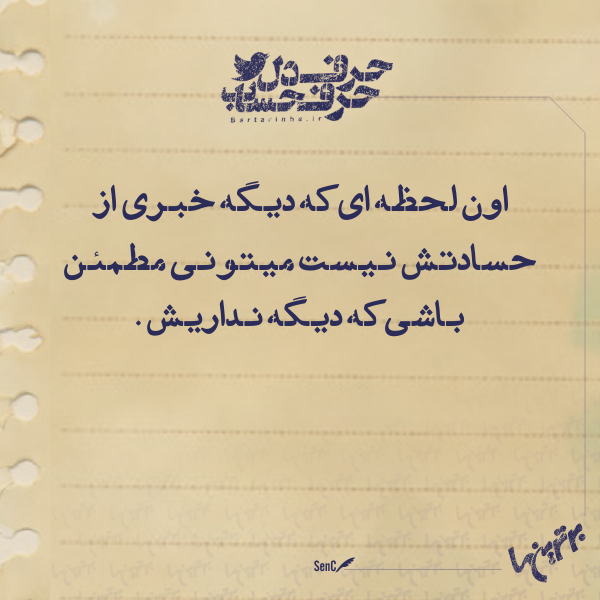 حرف دل
حرف حساب
Bartarinha.ir
اون لحظه ای که دیگه خبری از
حسادتش نیست میتونی مطمئن
باشی که دیگه نداریش.
SenC
برترین‌ها